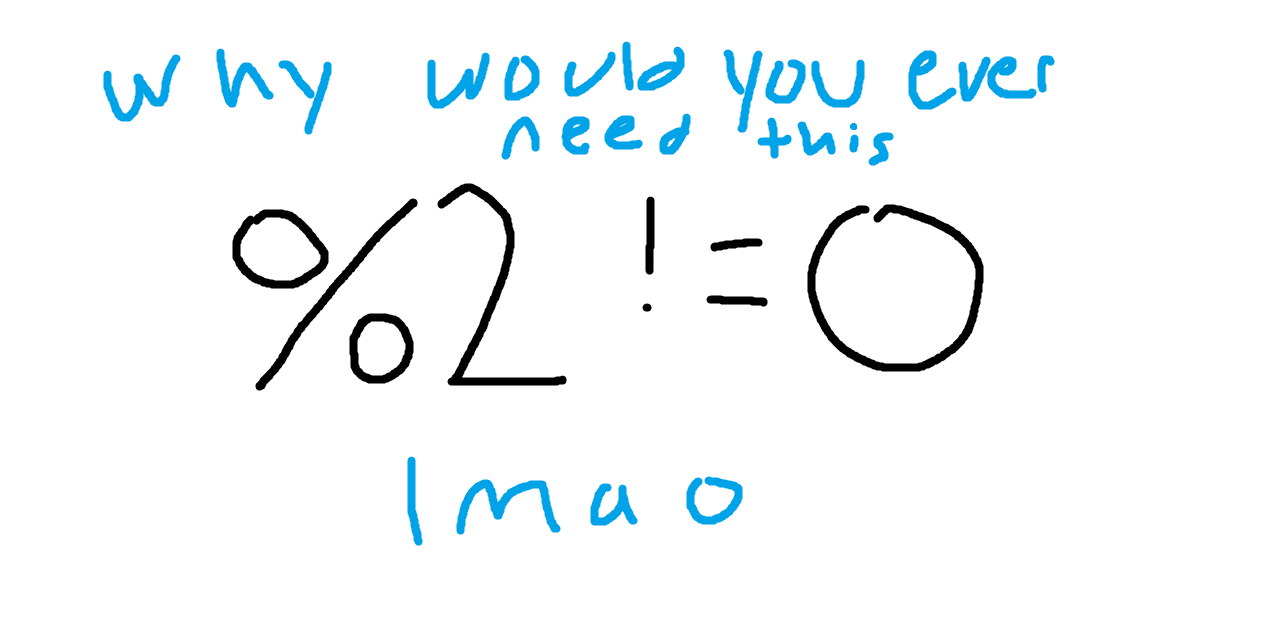 why would you ever
need this
%2 != 0
lmao